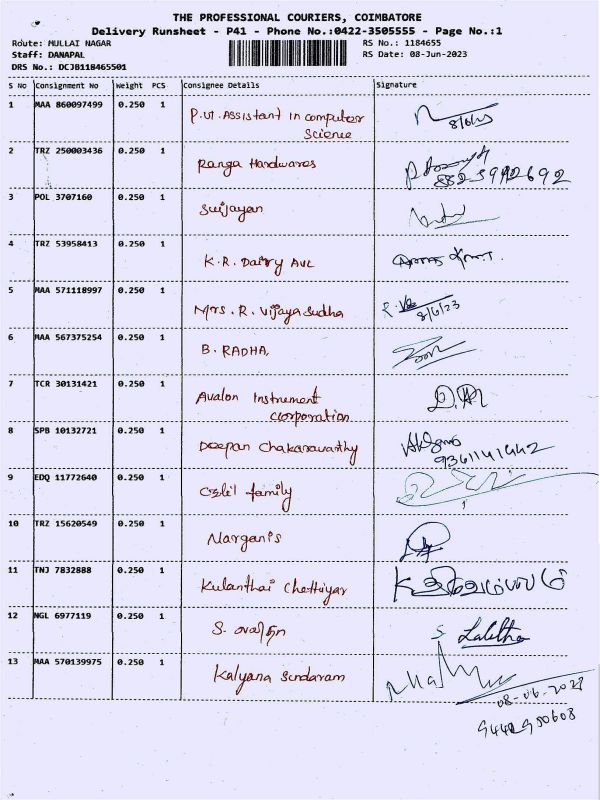 THE PROFESSIONAL COURIERS, COIMBATORE
Delivery Runsheet - P41 - Phone No.:0422-3505555 - Page No.:1
Route: MULLAI NAGAR
RS No.: 1184655
Staff: DANAPAL
RS Date: 08-Jun-2023
DRS No.: DCJB118465501
S No Consignment No Weight PCS Consignee Details Signature
1 MAA 860097499 0.250 1 P.UT. Assistant in computer
Science 8/6/23
2 TRZ 250003436 0.250 1 Ranga Hardwares
3 POL 3707160 0.250 1 Suijayan
4 TRZ 53958413 0.250 1 K.R. Dairy Avl
5 MAA 571118997 0.250 1 Mrs. R. Vijaya Sudha 8/6/23
6 MAA 567375254 0.250 1 B. RADHA,
7 TCR 30131421 0.250 1 Avalon Instrument
Corporation
8 SPB 10132721 0.250 1 Deepan Chakaravarthy
9361141442
9 EDQ 11772640 0.250 1 family
10 TRZ 15620549 0.250 1 Narganis
11 TNJ 7832888 0.250 1 Kulanthai Chettiyar
12 NGL 6977119 0.250 1 S. S. Lalitha
13 MAA 570139975 0.250 1 Kalyana Sundaram
08-06-2023
9442950608